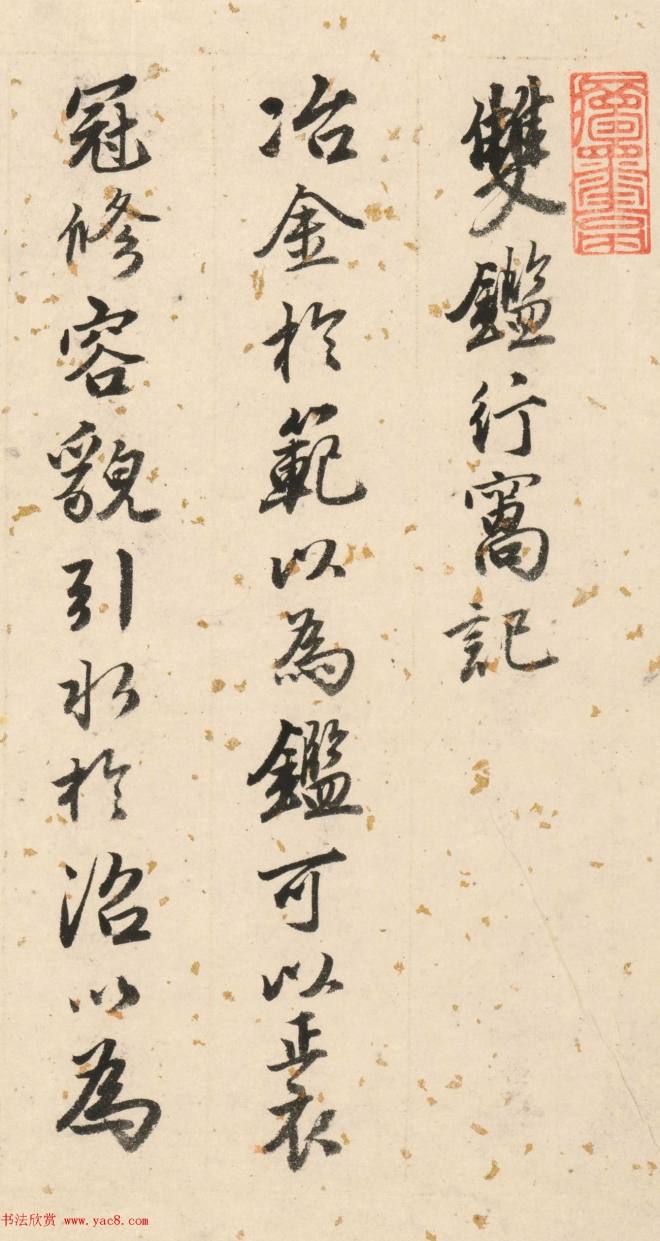 雙鑑行窩記
冶金於範以為鑑可以正衣
冠修容貌引水於沼以為
书法欣赏 www.yac8.com